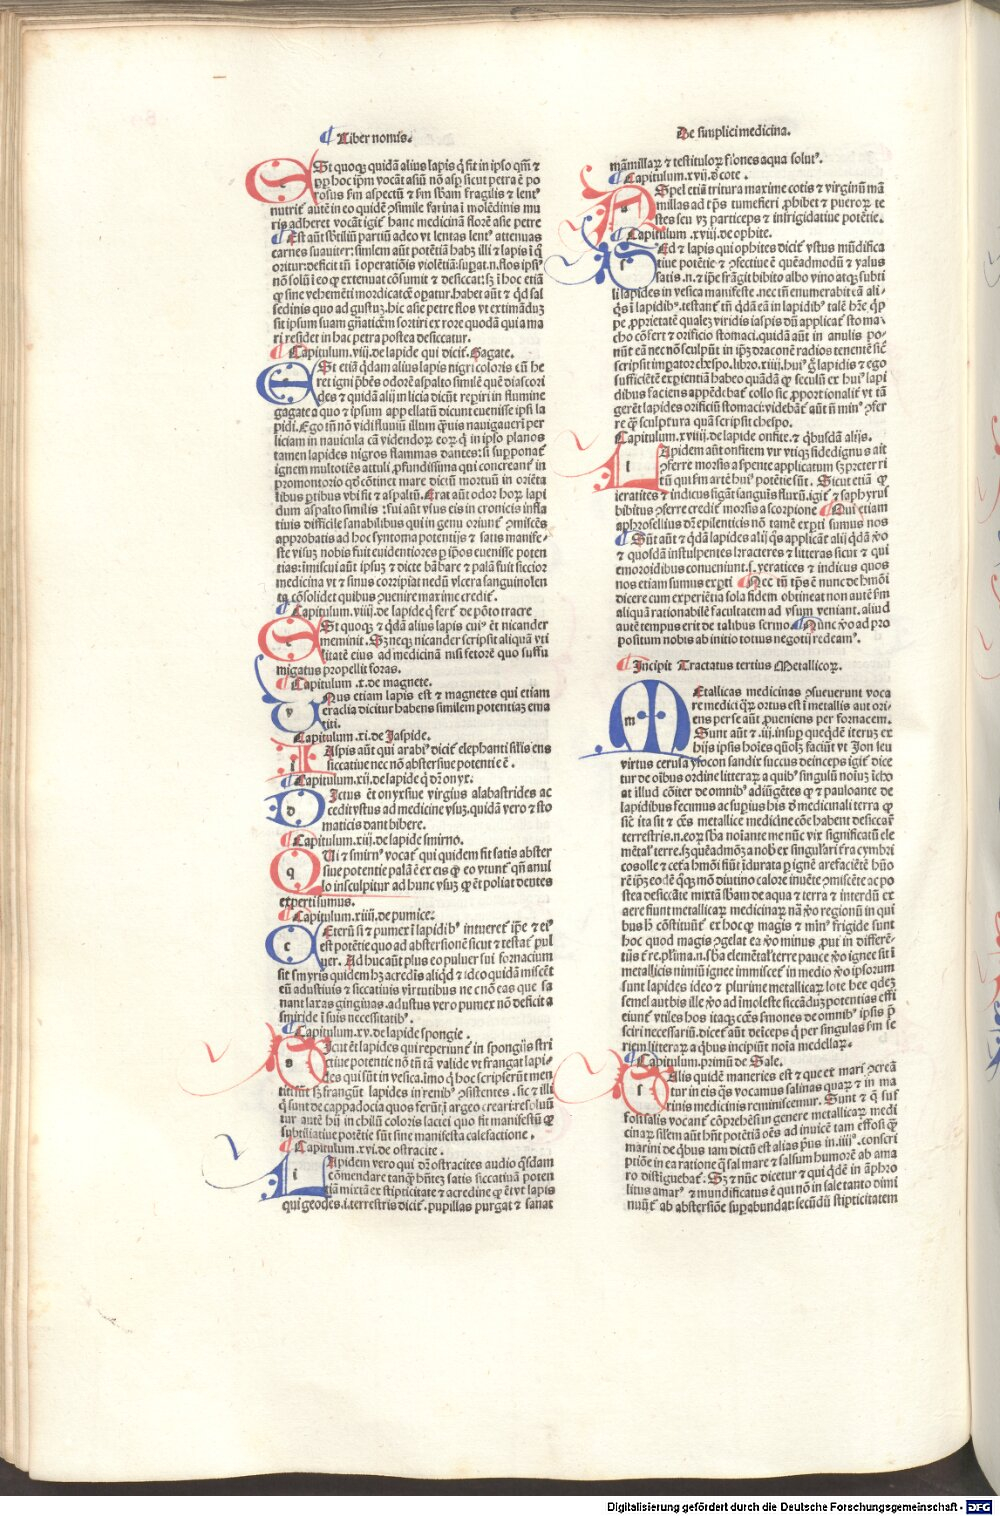 Liber nonus.
De simplici medicina.
St quoqꝫ quidā alius lapis q̄ fit in ipso qm̄ ⁊
ꝓpꝑ hoc ip̄m vocāt asiū nō asp̄ sicut petra ē po
rosus ẜm aspectū ⁊ ẜm sb̄am fragilis ⁊ lent⁹
nutrit᷑ autē in eo quidē ꝯsimile farina i molēdinis mu
ris adheret vocāt igit᷑ hanc medicinā florē asie petre
Est aūt sb̄tiliū partiū adeo vt lentas lent᷑ attenuas
carnes suauiter: similem aūt potētiā habꝫ illi ⁊ lapis ī q̄
oritur: deficit tn̄ ī operatiōis violētiā: suꝑat .n. flos ipsi⁹
nō solū ī eo ꝙ extenuat cōsumit ⁊ desiccat: sꝫ ī hoc etiā
ꝙ sine vehemēti mordicatōe opatur. habet aūt ⁊ qd̄ sal
sedinis quo ad gustuꝫ. hic asie petre flos vt extimāduꝫ
sit ipsum suam gn̄aticēm sortiri ex rore quodā qui a ma
ri residet in hac petra postea desiccatur.
Capitulum .viij. de lapide qui dicit᷑. Gagate.
St etiā q̄dam alius lapis nigri coloris cū he
ret igni p̄bēs odorē aspalto similē quē diascori
des ⁊ quidā alij in licia dicūt reꝑiri in flumine
gagate a quo ⁊ ipsum appellatū dicunt euenisse ipsi la
pidi. Ego tn̄ nō vidi fluuiū illum q̄uis nauigaueri per
liciam in nauicula cā videndoꝝ eoꝝ q̄ in ipso planos
tamen lapides nigros flammas dantes: si supponat᷑
ignem multotiēs attuli ꝓfundissima qui concreant᷑ in
promontorio qd̄ cōtinet mare dictū mortuū in oriēta
libus ꝑtibus vbi sūt ⁊ aspaltū. Erat aūt odor hoꝝ lapi
dum aspalto similis: fui aūt vsus eis in cronicis infla
tiuis difficile sanabilibus qui in genu oriunt᷑ ꝯmiscēs
approbatis ad hoc syntoma potentijs ⁊ satis manife
ste visuꝫ nobis fuit euidentiores ꝑ ip̄os euenisse poten
tias: īmiscui aūt ipsuꝫ ⁊ dicte bārbare ⁊ palā fuit siccior
medicina vt ⁊ sinus corripiat nedū vlcera sanguinolen
ta cōsolidet quibus ꝓuenire maxime credit᷑.
Capitulum .viiij. de lapide q̄ fert᷑ de pōto tracre
St quoqꝫ ⁊ q̄dā alius lapis cui⁹ ēt nicander
meminit. Sꝫ neqꝫ nicander scripsit aliquā vti
litatē eius ad medicinā nisi fetorē quo suffu
migatus propellit foras.
Capitulum .x. de magnete.
Nus etiam lapis est ⁊ magnetes qui etiam
eraclia dicitur habens similem potentiaꝫ ema
titi.
Capitulum .xi. de Jaspide.
Aspis aūt qui arabi⁹ dicit᷑ elephanti silis ens
siccatiue nec nō abstersiue potentie ē.
Capitulum .xij. de lapide q̄ dr̄ onyx.
Ictus ēt onyxsiue virgius alabastrides ac
cedit vstus ad medicine vsuꝫ. quidā vero ⁊ sto
maticis dant bibere.
Capitulum .xiij. de lapide smirno.
Ui ⁊ smirn⁹ vocat᷑ qui quidem fit satis abster
siue potentie palā ē ex eis ꝙ eo vtunt᷑ qn̄ anul
lo insculpitur ad hunc vsuꝫ ꝙ ēt poliat dentes
experti sumus.
Capitulum .xiiij. de pumice:
Eterū si ⁊ pumex ī lapidib⁹ intueret᷑ ip̄e ⁊ ei⁹
est potētie quo ad abstersionē sicut ⁊ testat᷑ pul
uer. Ad huc aūt plus eo puluer sui fornacium
sit smyris quidem hꝫ acredīs aliqd̄ ⁊ ideo quidā miscēt
eū adustiuis ⁊ siccatiuis virtutibus ne cnō eas que sa
nant laxas gingiuas. adustus vero pumex nō deficit a
smiride ī suis necessitatib⁹.
Capitulum .xv. de lapide spongie.
Icut ēt lapides qui reperiunt᷑ in spongijs stri
ctiue potentie nō tn̄ tā valide vt frangat lapi-
des qui sūt in vesica. imo q̄ hoc scripserūt men
titi sūt sꝫ frangūt lapides in renib⁹ ꝯsistentes. sic ⁊ illi
q̄ sunt de cappadocia quos ferūt: ī argeo creari: resoluū
tur autē hij in chilū coloris lactei quo fit manifestū ꝙ
subtiliatiue potētie sūt sine manifesta calefactione.
Capitulum .xvi. de ostracite.
Apidem vero qui dr̄ ostracites audio q̄sdam
cōmendare tanqꝫ hn̄teꝫ satis siccatiuā poten
tiā mixtā ex stipticitate ⁊ acredine ꝙ ēt vt lapis
qui geodes .i. terrestris dicit᷑. pupillas purgat ⁊ sanat
māmillaꝝ ⁊ testituloꝝ fi ones aqua solut⁹.
Capitulum .xvij. d̄ cote.
Spel etiā tritura maxime cotis ⁊ virginū mā
millas ad tp̄s tumefieri ꝓhibet ⁊ pueroꝝ te
stes seu vꝫ particeps ⁊ infrigidatiue potētie.
Capitulum .xviij. de ophite.
Ed ⁊ lapis qui ophites dicit᷑ vstus mūdifica
tiue potētie ⁊ ꝯfectiue ē quēadmodū ⁊ yalus
satis .n. ⁊ ip̄e frāgit bibito albo vino atqꝫ subti
li lapides in vesica manifeste. nec tn̄ enumerabit᷑ eā ali-
q̄s ī lapidib⁹. testant᷑ tn̄ q̄dā eā in lapidib⁹ talē hr̄e q̄ꝓ
pe ꝓprietatē qualeꝫ viridis iaspis dū applicat᷑ stoma-
cho cōfert ⁊ orificio stomaci. quidā aūt in anulis po-
nūt eā nec nō sculpūt in ip̄ꝫ draconē radios tenentē sic̄
scripsit imꝑator ehespo. libro .xiiij. hui⁹ q̄ lapidis ⁊ ego
sufficiētē exꝑientiā habeo quādā ꝙ seculū ex hui⁹ lapi
dibus faciens appēdebat᷑ collo sic ꝓportionalit᷑ vt tā
gerēt lapides orificiū stomaci: videbāt᷑ aūt n̄ min⁹ ꝯfer
re ꝙ sculptura quā scripsit ehespo.
Capitulum .xviiij. de lapide onfite. ⁊ q̄busdā alijs.
Apidem aūt onfitem vir vtiqꝫ fidedignus ait
ꝯferre morsis a ꝑpente applicatum sꝫ preter ri
tū qui ẜm artē hui⁹ potētie sūt. Sicut etiā ꝙ
ieratites ⁊ indicus sīgāt sanguīs fluxū. igit᷑ ⁊ saphyrus
bibitus ꝯferre credit᷑ morsis a scorpione Qui etiam
aphrosellius dr̄ epilenticis nō tamē exꝑti sumus nos
Sūt aūt ⁊ q̄dā lapides alij q̄s applicāt alij q̄dā v̄o
⁊ quosdā insculpentes kracteres ⁊ litteras sicut ⁊ qui
emoroidibus conueniunt .s. yeratices ⁊ indicus quos
nos etiam sumus exꝑti Nec tn̄ tp̄s ē nunc de hm̄oi
dicere cum experiētia sola fidem obtineat non autē ẜm
aliquā rationabilē facultatem ad vsum veniant. aliud
autē tempus erit de talibus sermo. Nunc v̄o ad pro
positum nobis ab initio totius negotij redeam⁹.
Incipit Tractatus tertius Metallicoꝝ.
Etallicas medicinas ꝯsueuerunt voca
re medici q̄ꝝ ortus est ī metallis aut ori-
ens per se aūt ꝓueniens per fornacem.
Sunt aūt ⁊ .iij. insuꝑ queqd̄ē iteruꝫ ex
hijs ipsis hoīes qn̄oqꝫ faciūt vt Jon seu
virtus cerusa yfocon sandix succus deinceps igit᷑ dice
tur de oībus ordine litteraꝝ a quib⁹ singulū noīuꝫ īcho
at illud cōiter de omnib⁹ adiūgētes ꝙ ⁊ pauloante de
lapidibus fecimus ac supius his d̄ medicinali terra ꝙ
sic̄ ita sit ⁊ cēs metallice medicine cōe habent desiccar̄
terrestris .n. eoꝝ sb̄a noīante me nūc vix significatū ele
mētał terre. sꝫ quēadmoꝫ a nob⁹ ex singulari t̄ra cymbri
cos olle ⁊ cet̄a hm̄oi fiūt īdurata ꝑ ignē arefaciētē hn̄o
rē ip̄ꝫ eodē q̄qꝫ mō diutino calore inuēte ꝯmiscēte ac po
stea desiccāte mixtā sb̄am de aqua ⁊ terra ⁊ interdū ex
aere fiunt metallicaꝝ medicinaꝝ nā v̄o regionū in qui
bus h̄ cōstituūt᷑ ex hoc ꝙ magis ⁊ min⁹ frigide sunt
hoc quod magis ꝯgelat ea v̄o minus. put in differē-
tijs t̄re pl̄ima .n. sb̄a elemētał terre pauce v̄o ignee sit ī
metallicis nimiū ignee immiscet᷑ in medio v̄o ipsorum
sunt lapides ideo ⁊ plurime metallicaꝝ lote hec qd̄eꝫ
semel aut bis ille v̄o ad ī moleste siccādaꝫ potentias effi
ciunt᷑ vtiles hos itaqꝫ cc̄es ẜmones de omnib⁹ ipsis p̄
sciri necessariū. dicet᷑ aūt deīceps q̄ per singulas ẜm se
riem litteraꝝ a q̄bus incipiūt noīa medellaꝝ.
Capitulum .primū de Sale.
Alis quidē maneries est ⁊ que ex mari ꝓcreā
tur in eis q̄s vocamus salinas quaꝝ ⁊ in ma
rinis medicinis reminiscemur. Sunt ⁊ q̄ suf
fossi salis vocant᷑ cōprehēsi in genere metallicaꝝ medi
cinaꝝ silem aūt hn̄t potētiā oēs ad inuicē tam effosi ꝙ
marini de q̄bus iam dictū est alias p̄us in .iiij⁰. conscri
ptiōe in ea ratione ꝙ sal mare ⁊ salsum humorē ab ama
ro distiguebat᷑. Sꝫ ⁊ nūc dicetur ⁊ qui qd̄ē in āphro
litus amar⁹ ⁊ mundificatus ē qui nō in sale tanto dimi
nuūt᷑ ab abstersiōe suꝑabundat: secūdū stipticitatem
Digitalisierung gefördert durch die Deutsche Forschungsgemeinschaft - DFG